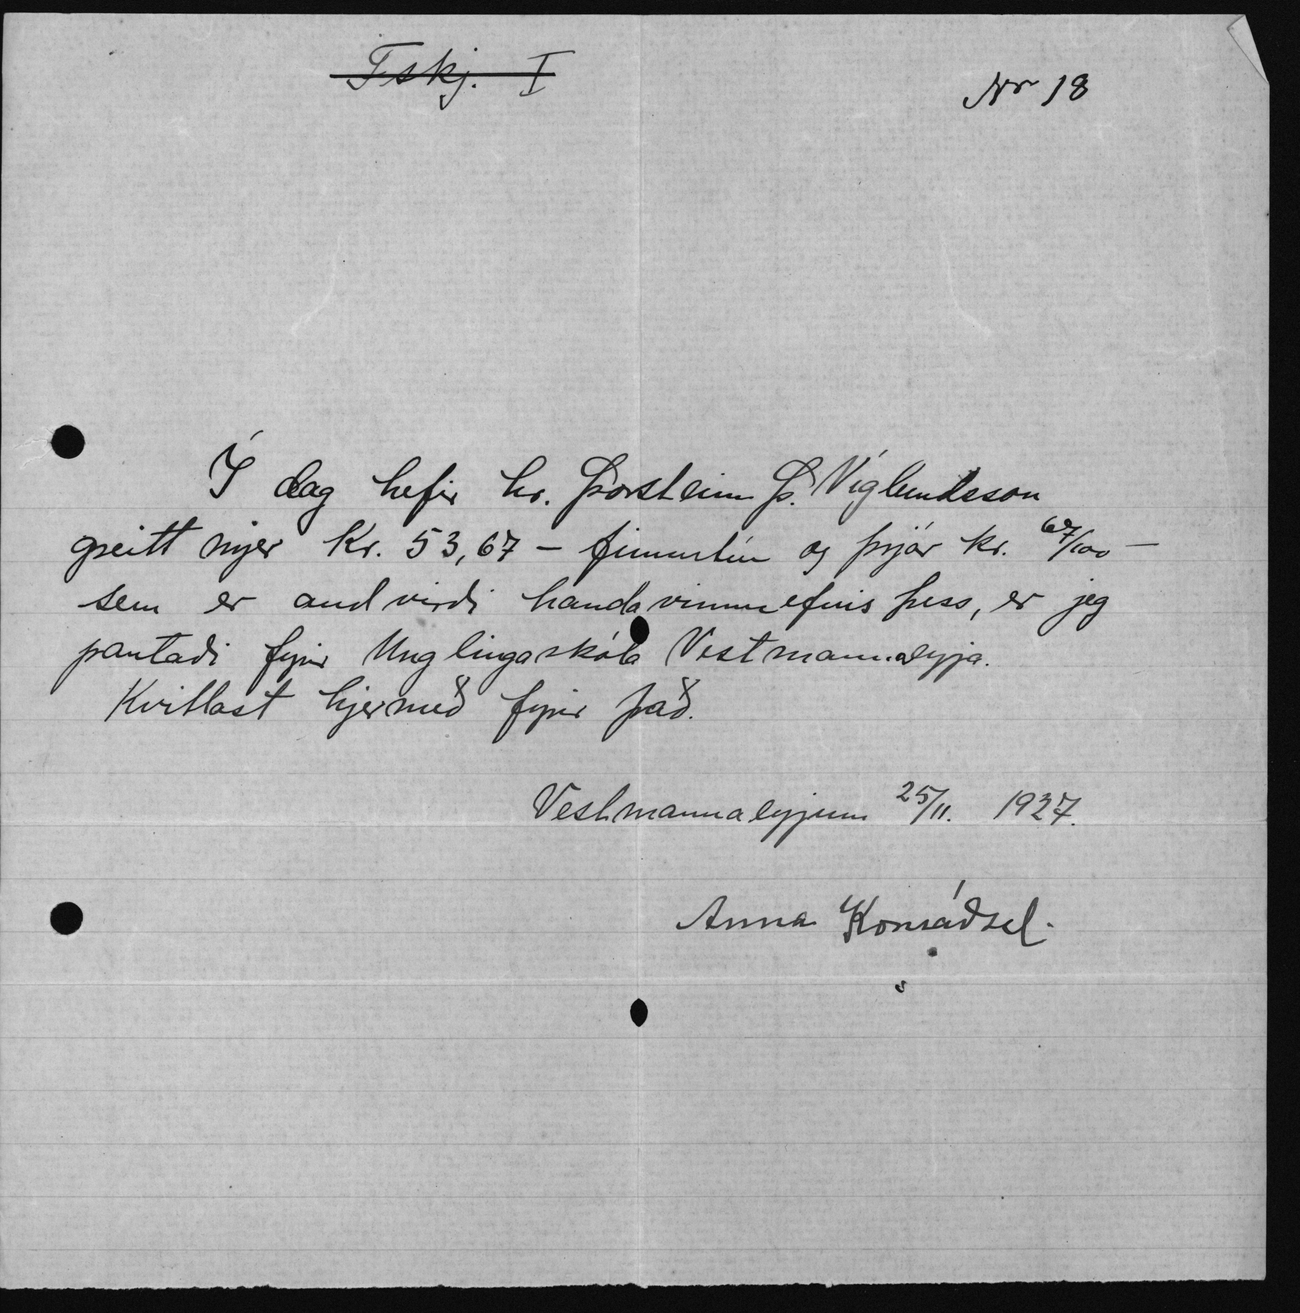 Fskj. I
Nr 18
Í dag hefir hr. Þorsteinn Þ. Víglundsson
greitt mjer Kr. 53,67 – fimmtíu og þrjár kr. 67/100 –
sem er andvirði handavinnuefnis þess, er jeg
pantaði fyrir Unglingaskóla Vestmannaeyja.
Kvittast hjermeð fyrir það.
Vestmannaeyjum 25/11. 1927.
Anna Konráðsd.